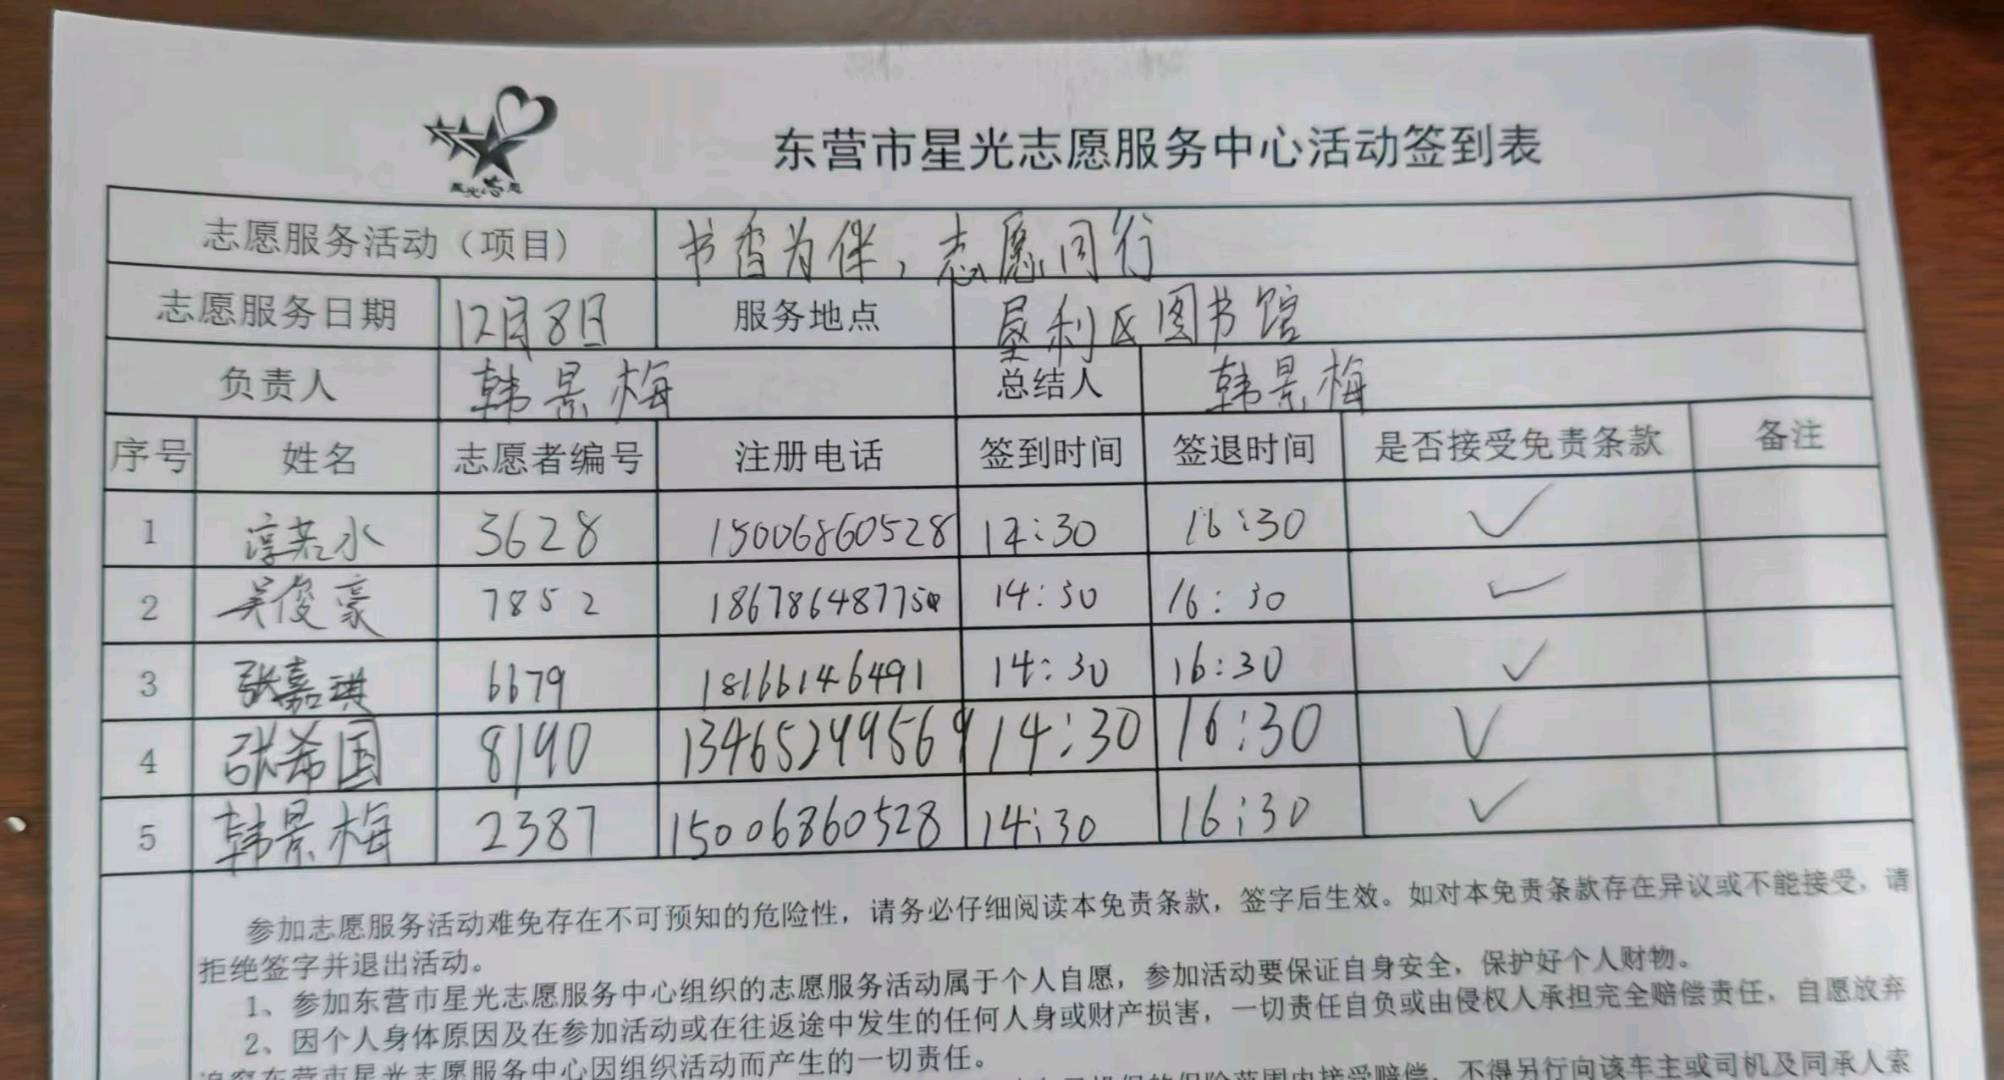 星光志愿
东营市星光志愿服务中心活动签到表
志愿服务活动（项目） 书香为伴，志愿同行
志愿服务日期 12月8日 服务地点 垦利区图书馆
负责人 韩景梅 总结人 韩景梅
序号 姓名 志愿者编号 注册电话 签到时间 签退时间 是否接受免责条款 备注
1 淳若水 3628 15006860528 14:30 16:30 ✓
2 吴俊豪 7852 1867864877 14:30 16:30 ✓
3 张嘉琪 6679 18166146491 14:30 16:30 ✓
4 张希国 8190 13465299569 14:30 16:30 ✓
5 韩景梅 2387 15006860528 14:30 16:30 ✓
参加志愿服务活动难免存在不可预知的危险性，请务必仔细阅读本免责条款，签字后生效。如对本免责条款存在异议或不能接受，请
拒绝签字并退出活动。
1、参加东营市星光志愿服务中心组织的志愿服务活动属于个人自愿，参加活动要保证自身安全，保护好个人财物。
2、因个人身体原因及在参加活动或在往返途中发生的任何人身或财产损害，一切责任自负或由侵权人承担完全赔偿责任，自愿放弃
追究东营市星光志愿服务中心因组织活动而产生的一切责任。
的保险范围内接受赔偿，不得另行向该车主或司机及同承人索